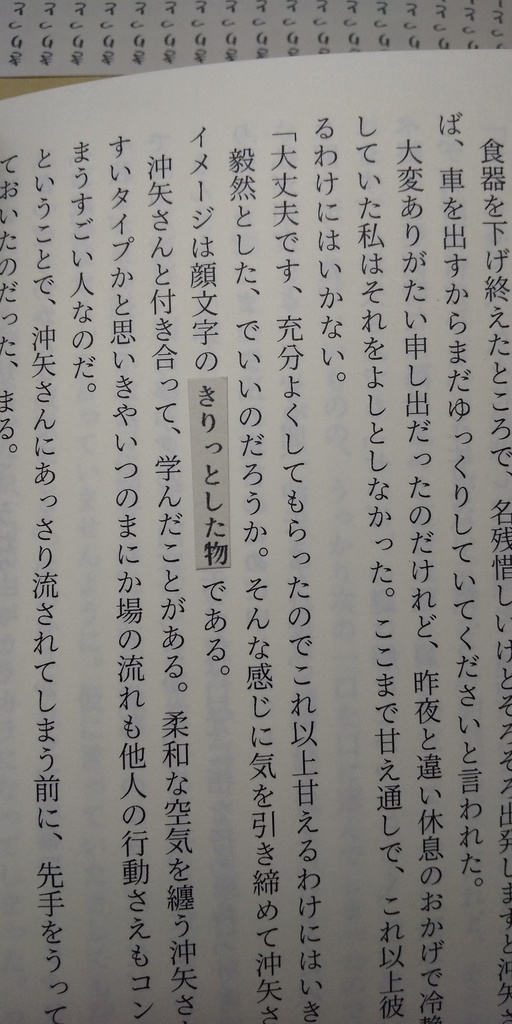 食器を下げ終えたところで、名残惜しいけどそろそろ出発しますと沖矢さ
ば、車を出すからまだゆっくりしていてくださいと言われた。
大変ありがたい申し出だったのだけれど、昨夜と違い休息のおかげで冷静
していた私はそれをよしとしなかった。ここまで甘え通しで、これ以上彼
るわけにはいかない。
「大丈夫です、充分よくしてもらったのでこれ以上甘えるわけにはいき
毅然とした、でいいのだろうか。そんな感じに気を引き締めて沖矢さ
イメージは顔文字のきりっとした物である。
沖矢さんと付き合って、学んだことがある。柔和な空気を纏う沖矢さ
すいタイプかと思いきやいつのまにか場の流れも他人の行動さえもコン
まうすごい人なのだ。
ということで、沖矢さんにあっさり流されてしまう前に、先手をうって
ておいたのだった、まる。